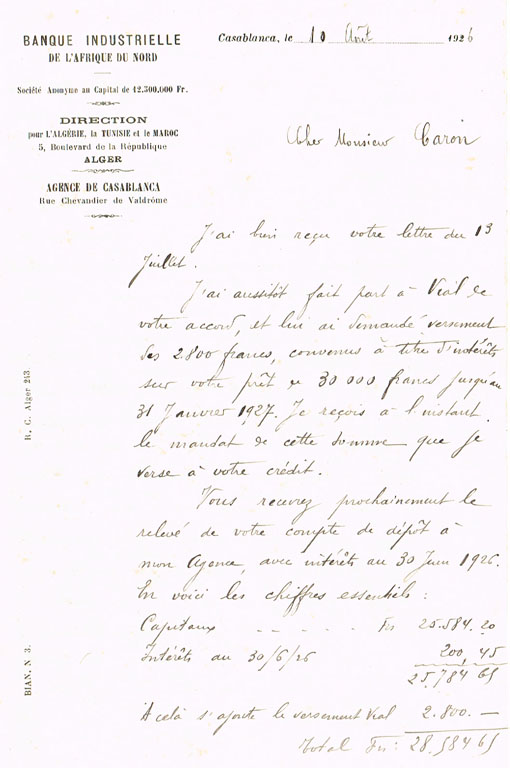 BANQUE INDUSTRIELLE
DE L'AFRIQUE DU NORD
Société Anonyme au Capital de 12.500.000 Fr.
DIRECTION
pour L'ALGÉRIE, la TUNISIE et le MAROC
5, Boulevard de la République
ALGER
AGENCE DE CASABLANCA
Rue Chevandier de Valdrôme
Casablanca, le 10 Août 1926
Cher Monsieur Caron
J'ai bien reçu votre lettre du 13
Juillet.
J'ai aussitôt fait part à Vial de
votre accord, et lui ai demandé versement
des 2.800 francs, convenus à titre d'intérêts
sur votre prêt de 30 000 francs jusqu'au
31 Janvier 1927. Je reçois à l'instant
le mandat de cette somme que je
verse à votre crédit.
Vous recevrez prochainement le
relevé de votre compte de dépôt à
mon Agence, avec intérêts au 30 Juin 1926.
En voici les chiffres essentiels :
Capitaux - - - - - Frs 25.584.20
Intérêts au 30/6/26 200,45
25.784 65
A celà s'ajoute le versement Vial 2.800. —
Total Frs : 28.584 65
R. C. Alger 213
BIAN. N 3.